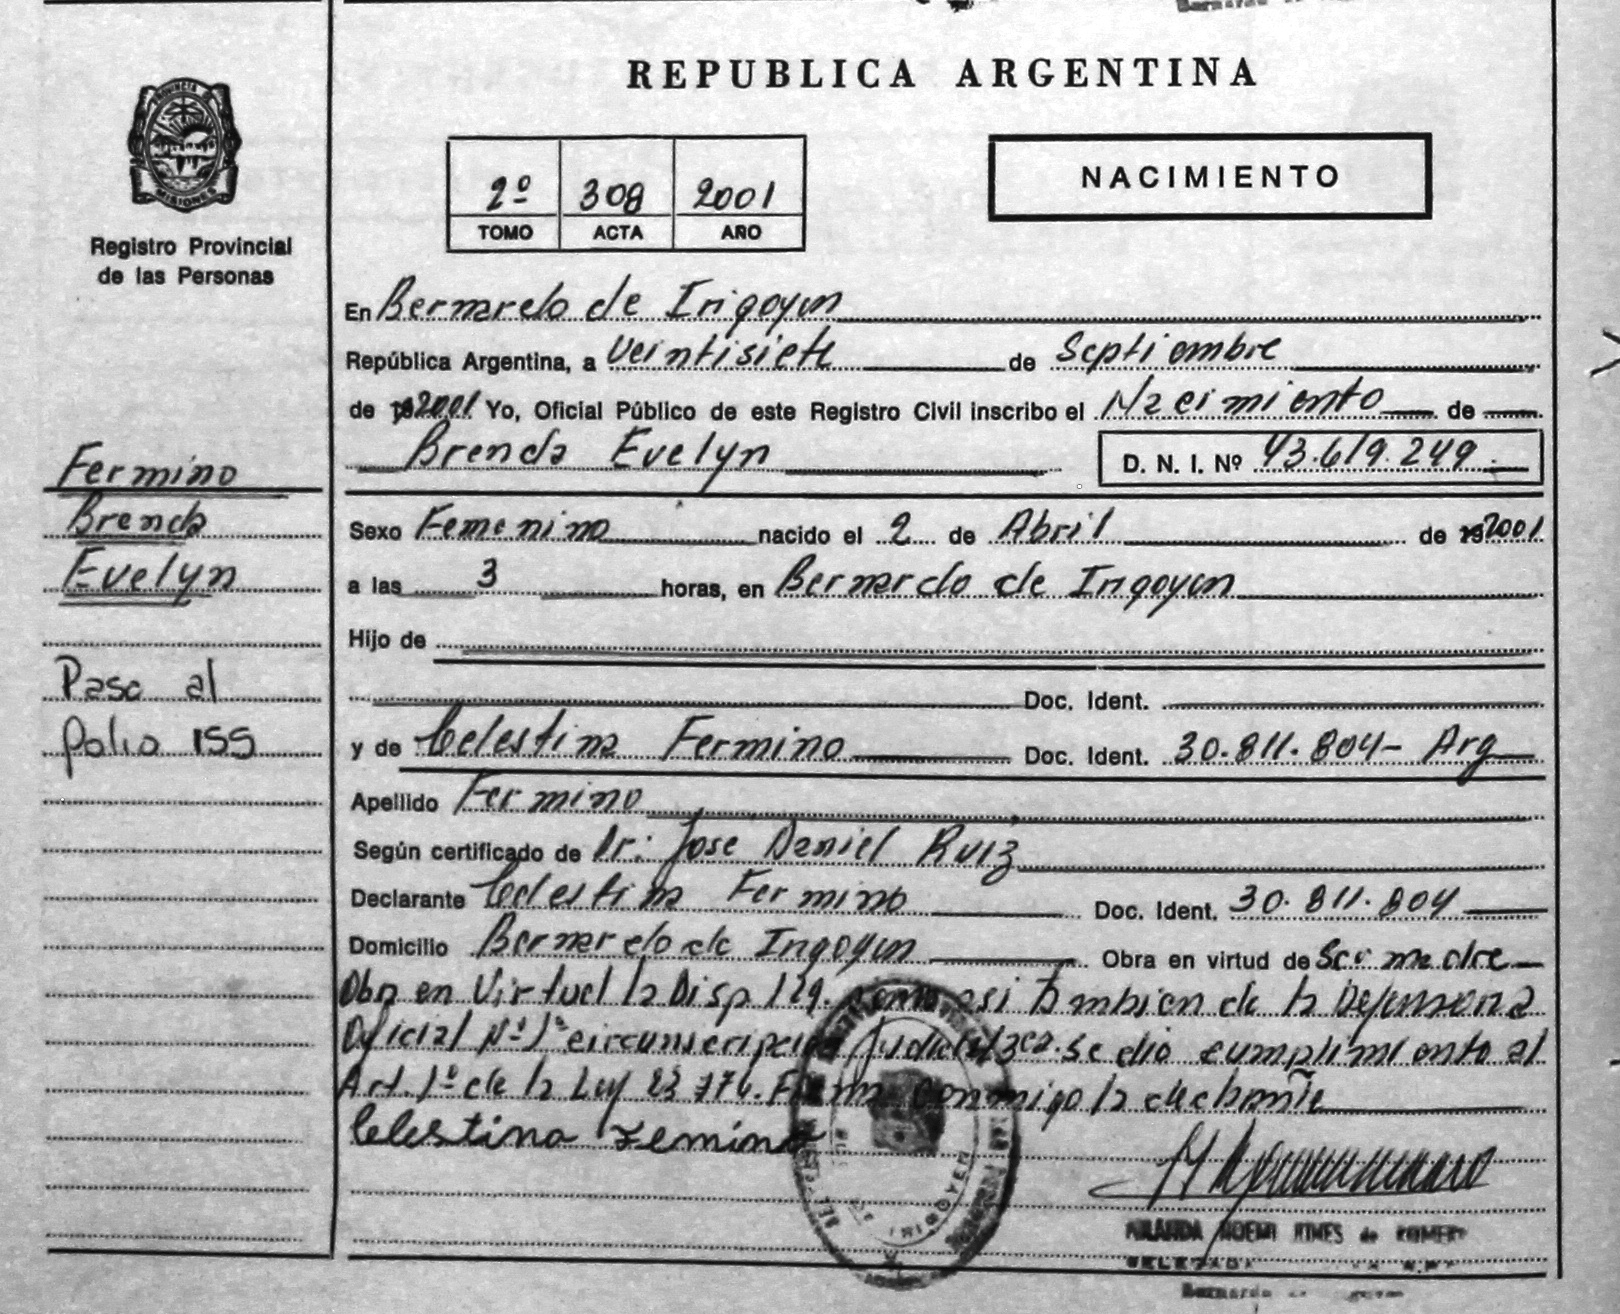 REPUBLICA ARGENTINA
PROVINCIA DE
MISIONES
Registro Provincial
de las Personas
2º 308 2001
TOMO ACTA AÑO
NACIMIENTO
En Bernardo de Irigoyen
República Argentina, a Veintisiete de Septiembre
de 192001 Yo, Oficial Público de este Registro Civil inscribo el Nacimiento de
Brenda Evelyn D. N. I. Nº 43.619.249.
Fermino
Brenda
Evelyn
Sexo Femenino nacido el 2 de Abril de 192001
a las 3 horas, en Bernardo de Irigoyen
Hijo de
Doc. Ident.
Pasa al
folio 155
y de Celestina Fermino Doc. Ident. 30.811.804- Arg
Apellido Fermino
Según certificado de Dr: Jose Daniel Ruiz
Declarante Celestina Fermino Doc. Ident. 30.811.804
Domicilio Bernardo de Irigoyen Obra en virtud de Ser madre
Obra en Virtud la Disp 129. como asi tambien de la Defensoria
Oficial Nº 1º circunscripcion Judicial 3ra. Se dio cumplimiento al
Art. 1º de la Ley 23.776. Firma conmigo la declarante
Celestina Femino
MIRANDA NOEMI de ROMERO
Bernardo de Irigoyen